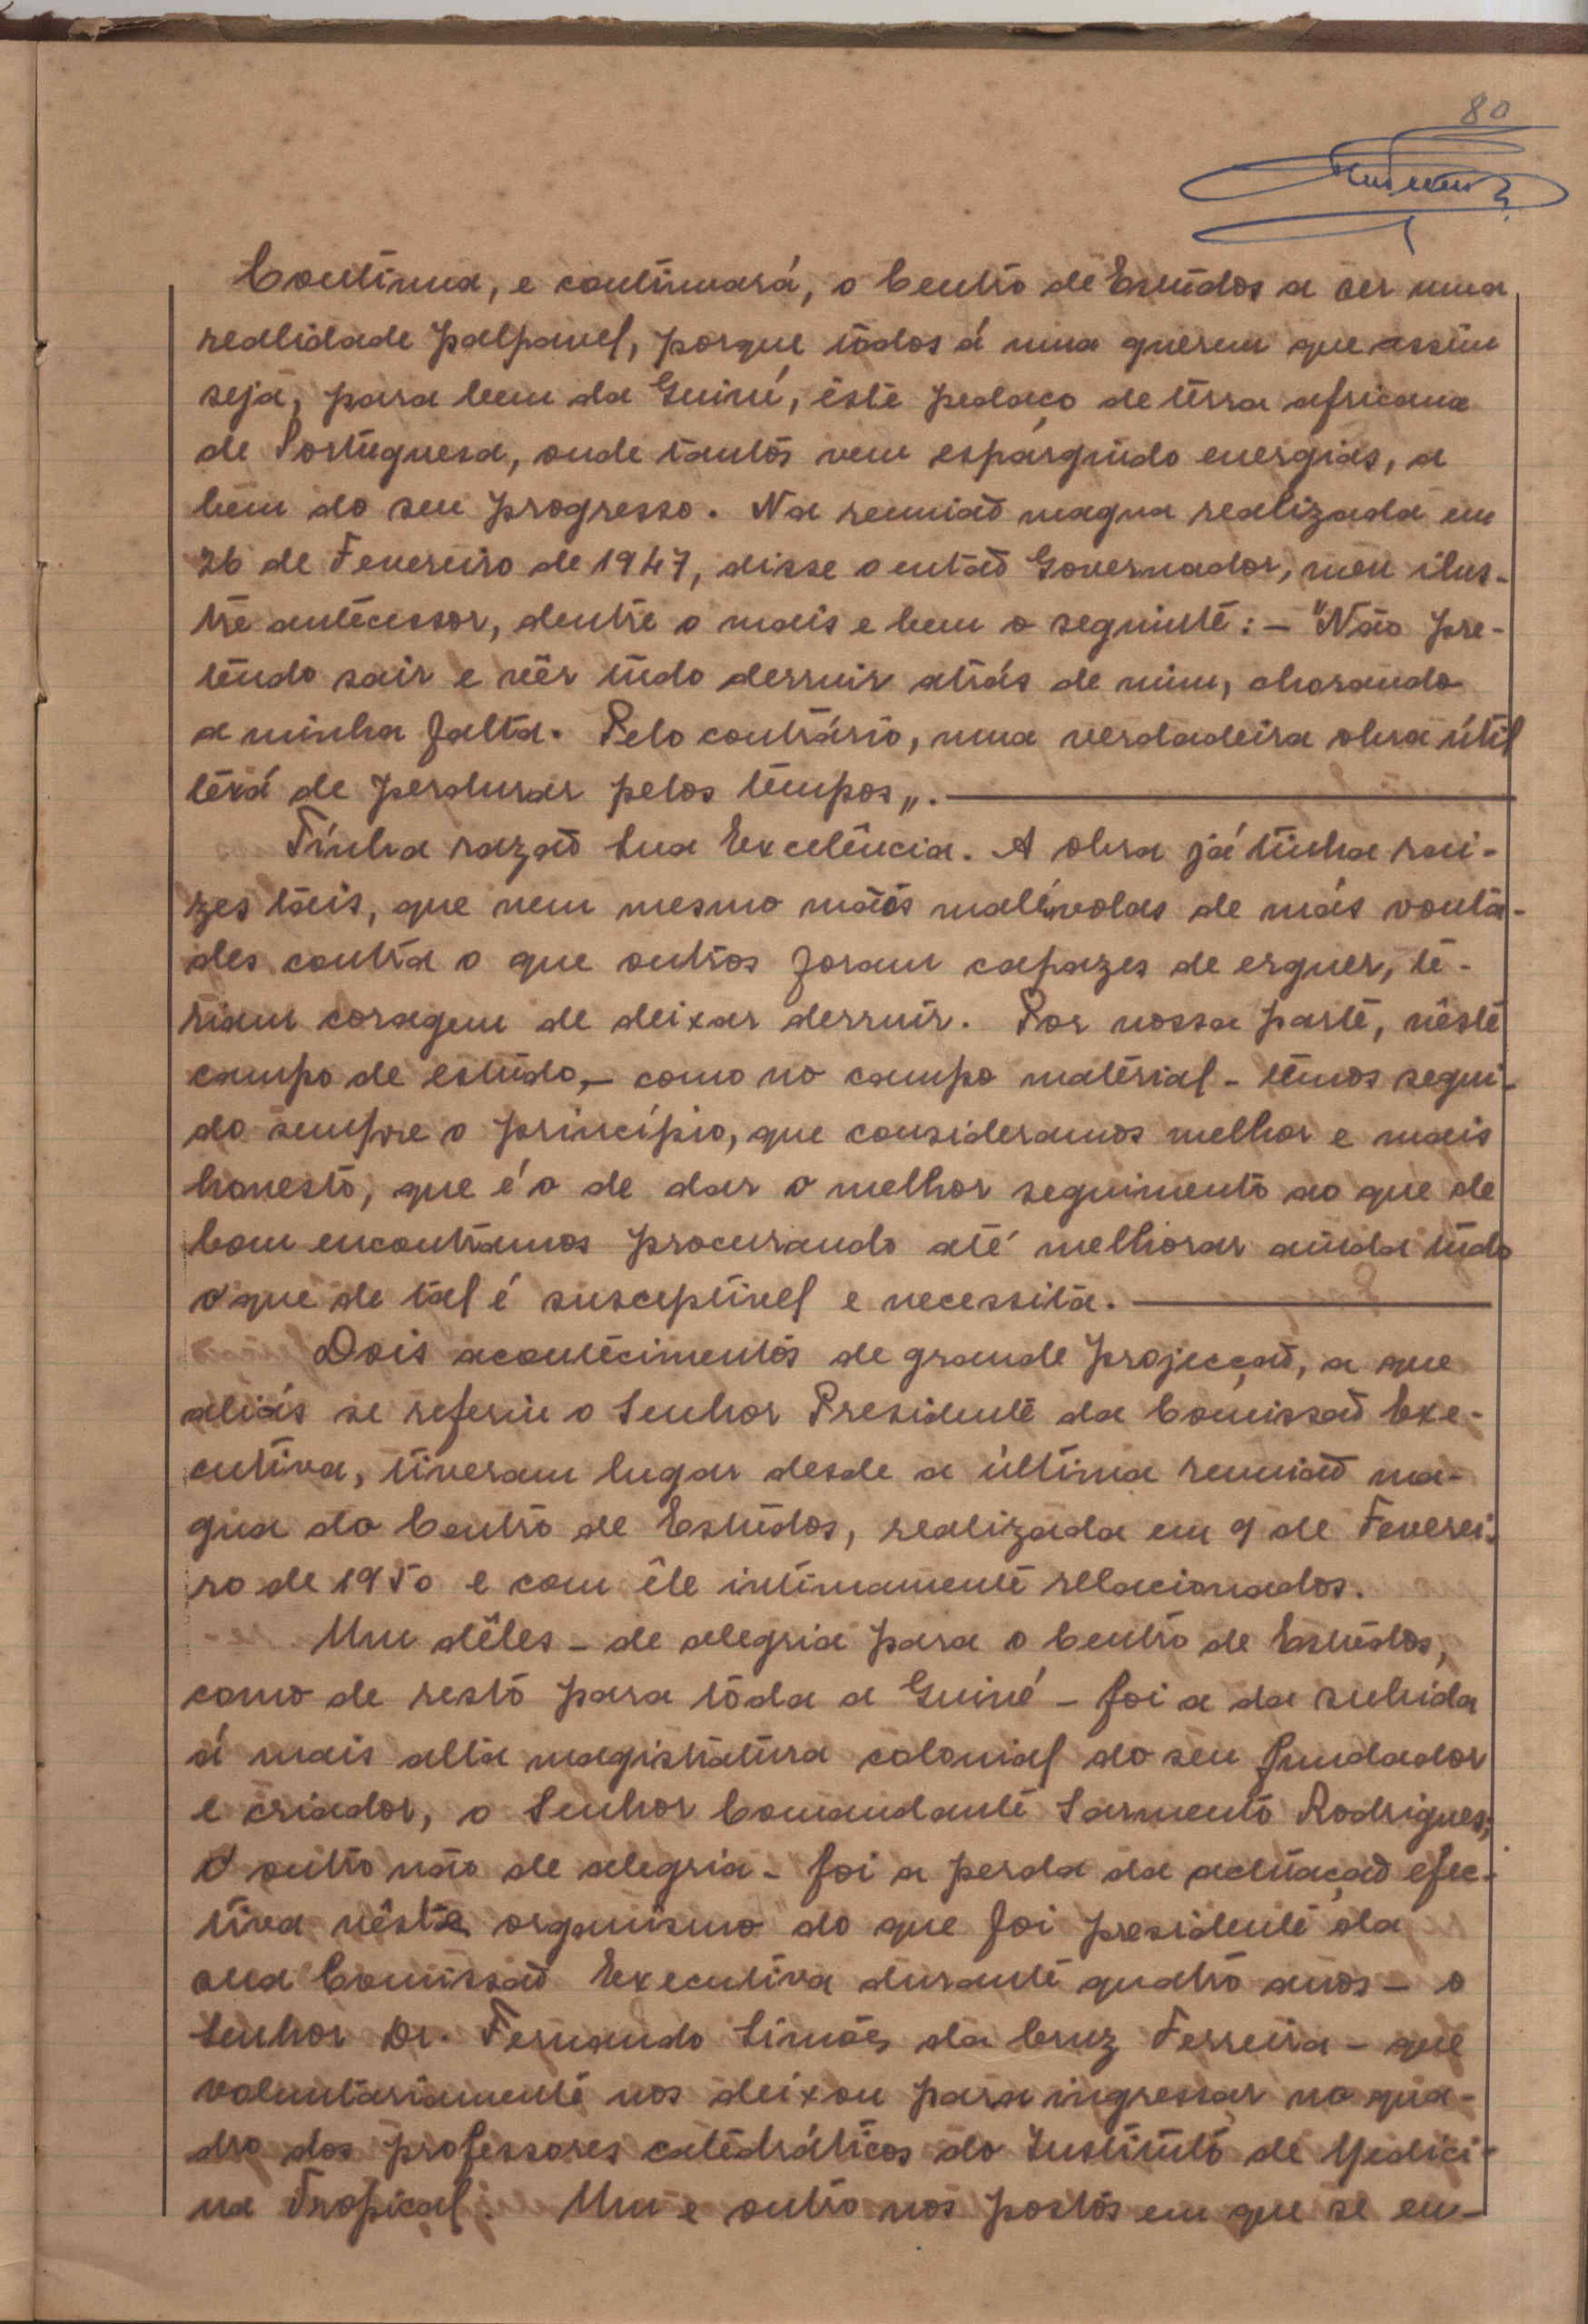 80
Continua, e continuará, o Centro de Estudos a ser uma
realidade palpavel, porque tôdos á uma querem que assim
seja, para bem da Guiné, êste pedaço de terra africana
de Portuguesa, onde tantos vem espargindo energias, a
bem do seu progresso. Na reuniaõ magna realizada em
26 de Fevereiro de 1947, disse o entaõ Governador, meu ilus-
tre antecessor, dentre o mais e bem o seguinte: – "Não pre-
tendo sair e vêr tudo derruir atrás de mim, chorando
a minha falta. Pelo contrário, uma verdadeira obra útil
terá de perdurar pelos tempos„. —
Tinha razaõ Sua Excelência. A obra já tinha rai-
zes tais, que nem mesmo mãos malévolas de más vonta-
des contra o que outros foram capazes de erguer, te-
riam coragem de deixar derruir. Por nossa parte, nêste
campo de estudo, – como no campo material – temos segui-
do sempre o princípio, que consideramos melhor e mais
honesto, que é o de dar o melhor seguimento ao que de
bom encontramos procurando até melhorar ainda tudo
o que de tal é susceptivel e necessita. —
Dois acontecimentos de grande projecçaõ, a que
aliás se referiu o Senhor Presidente da Comissaõ Exe-
cutiva, tiveram lugar desde a última reuniaõ ma-
gna do Centro de Estudos, realizada em 9 de Feverei-
ro de 1950 e com êle intimamente relacionados.
Um dêles – de alegria para o Centro de Estudos,
como de resto para tôda a Guiné – foi a da subida
á mais alta magistratura colonial do seu fundador
e criador, o Senhor Comandante Sarmento Rodrigues;
O outro não de alegria – foi a perda da actuaçaõ efec-
tiva nêste organismo do que foi presidente da
sua Comissaõ Executiva durante quatro anos – o
Senhor Dr. Fernando Simões da Cruz Ferreira – que
voluntariamente nos deixou para ingressar no qua-
dro dos professores catedráticos do Instituto de Medici-
na Tropical. Um e outro nos postos em que se en-